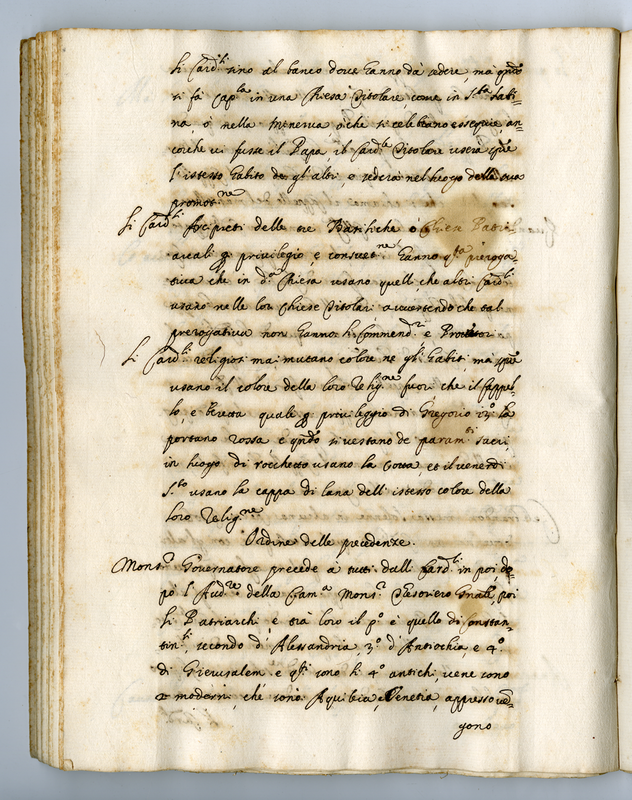 li Card.li sino al banco dove hanno da sedere ma qndo
si fà cap.la in una Chiesa Titolare, come in S.ta Sabi=
na, ò nella Minerva ò che si celebrano essequie, an=
corche vi fusse il Papa, il Card.le Titolare userà
l'istesso habito de gli altri, e sederà nel luogo della sua
promot.ne
Li Card.li Arcipreti delle tre Basiliche ò Chiese Patri=
arcali p privilegio, e consuet.ne hanno q.sta preroga=
tiva che in d.a Chiesa usano quell, che altri Card.li
usano nelle lor Chiese Titolari avvertendo che tal
prerogativa non hanno li Commend.ri e Protettori
Li Card.li religiosi mai mutano colore ne gli habiti, ma
usano il colore della loro Relig.ne fuori che il Cappel=
lo, e beretta quale p privileggio di Gregorio 13.o la
portano rossa e qndo si vestono de param.ti sacri,
in luogo di rocchetto usano la Cotta et il venerdi
S.to usano la cappa di lana dell'istesso colore della
loro Relig.ne
Ordine delle precedenze.
Mons.r Governatore precede à tutti dalli Card.li in poi, do=
pò l'Aud.re della Cam.a Mons.r Tesoriero Gnale, poi
li Patriarchi, e trà loro il p.o è quello di Constan=
tin.li, secondo d'Alessandria, 3.o d'Antiochia, e 4.o
di Gierusalem e q.sti sono li 4.o antichi, vene sono
2 moderni, che sono Aquileia, e Venetia, appresso ve=
gono